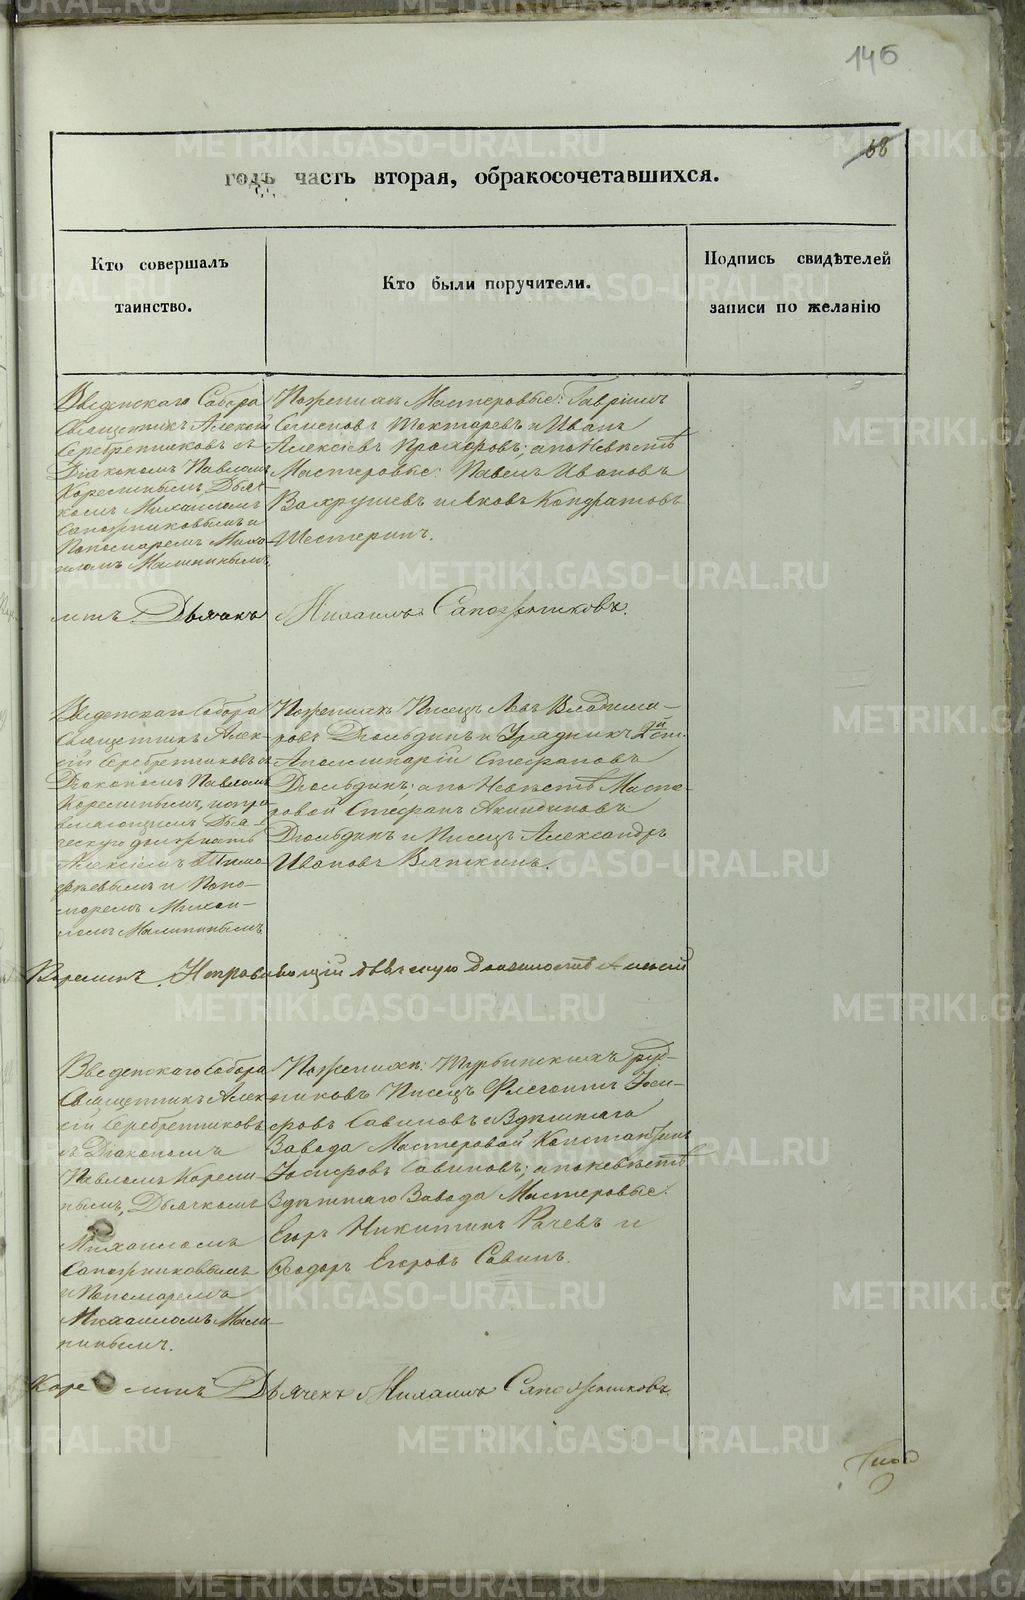 146
68
годъ часть вторая, обракосочетавшихся.
Кто совершалъ
таинство.
Кто были поручители.
Подпись свидѣтелей
записи по желанію
Введенскаго Собора
Священникъ Алексій
Серебренниковъ съ
Діакономъ Павломъ
Корелинымъ, Дьяч-
комъ Михаиломъ
Сапожниковымъ и
Пономаремъ Миха-
иломъ Малининымъ
По женихѣ Мастеровые: Гавріилъ
Семеновъ Токтаревъ и Иванъ
Алексіевъ Прохоровъ; а по Невѣстѣ
Мастеровые: Павелъ Ивановъ
Вахрушевъ и Яковъ Кондратовъ
Шестеринъ.
Дьячекъ Михаилъ Сапожниковъ.
Введенскаго Собора
Священникъ Алек-
сій Серебренниковъ съ
Діакономъ Павломъ
Корелинымъ, исправ
вляющимъ Дья-
ческую должность
Алексіемъ
и Поно-
маремъ Михаи-
ломъ Малининымъ
По женихѣ Писецъ Левъ Владими-
ровъ Дюльдинъ и Урядникъ 2й ст.
Аполлинарій Стефановъ
Дюльдинъ; а по Невѣстѣ Масте-
ровой Стефанъ Акиндиновъ
Дюльдинъ и Писецъ Александръ
Ивановъ Вяткинъ.
Корелинъ. Исправляющій дьяческую Должность Алексій
Введенскаго Собора
Священникъ Алек-
сій Серебренниковъ
съ Діакономъ
Павломъ Корели-
нымъ, Дьячкомъ
Михаиломъ
Сапожниковымъ
и Пономаремъ
Михаиломъ Мали-
нинымъ.
По женихѣ: Турьинскихъ руд-
никовъ Писецъ Флегонтъ Іоси-
фовъ Савиновъ и Здѣшняго
Завода Мастеровой Константинъ
Іосифовъ Савиновъ; а по невѣстѣ
Здѣшняго Завода Мастеровые:
Егоръ Никитинъ Рачевъ и
Ѳеодоръ Егоровъ Савинъ.
Коре линъ Дьячекъ Михаилъ Сапожниковъ.
METRIKI.GASO-URAL.RU